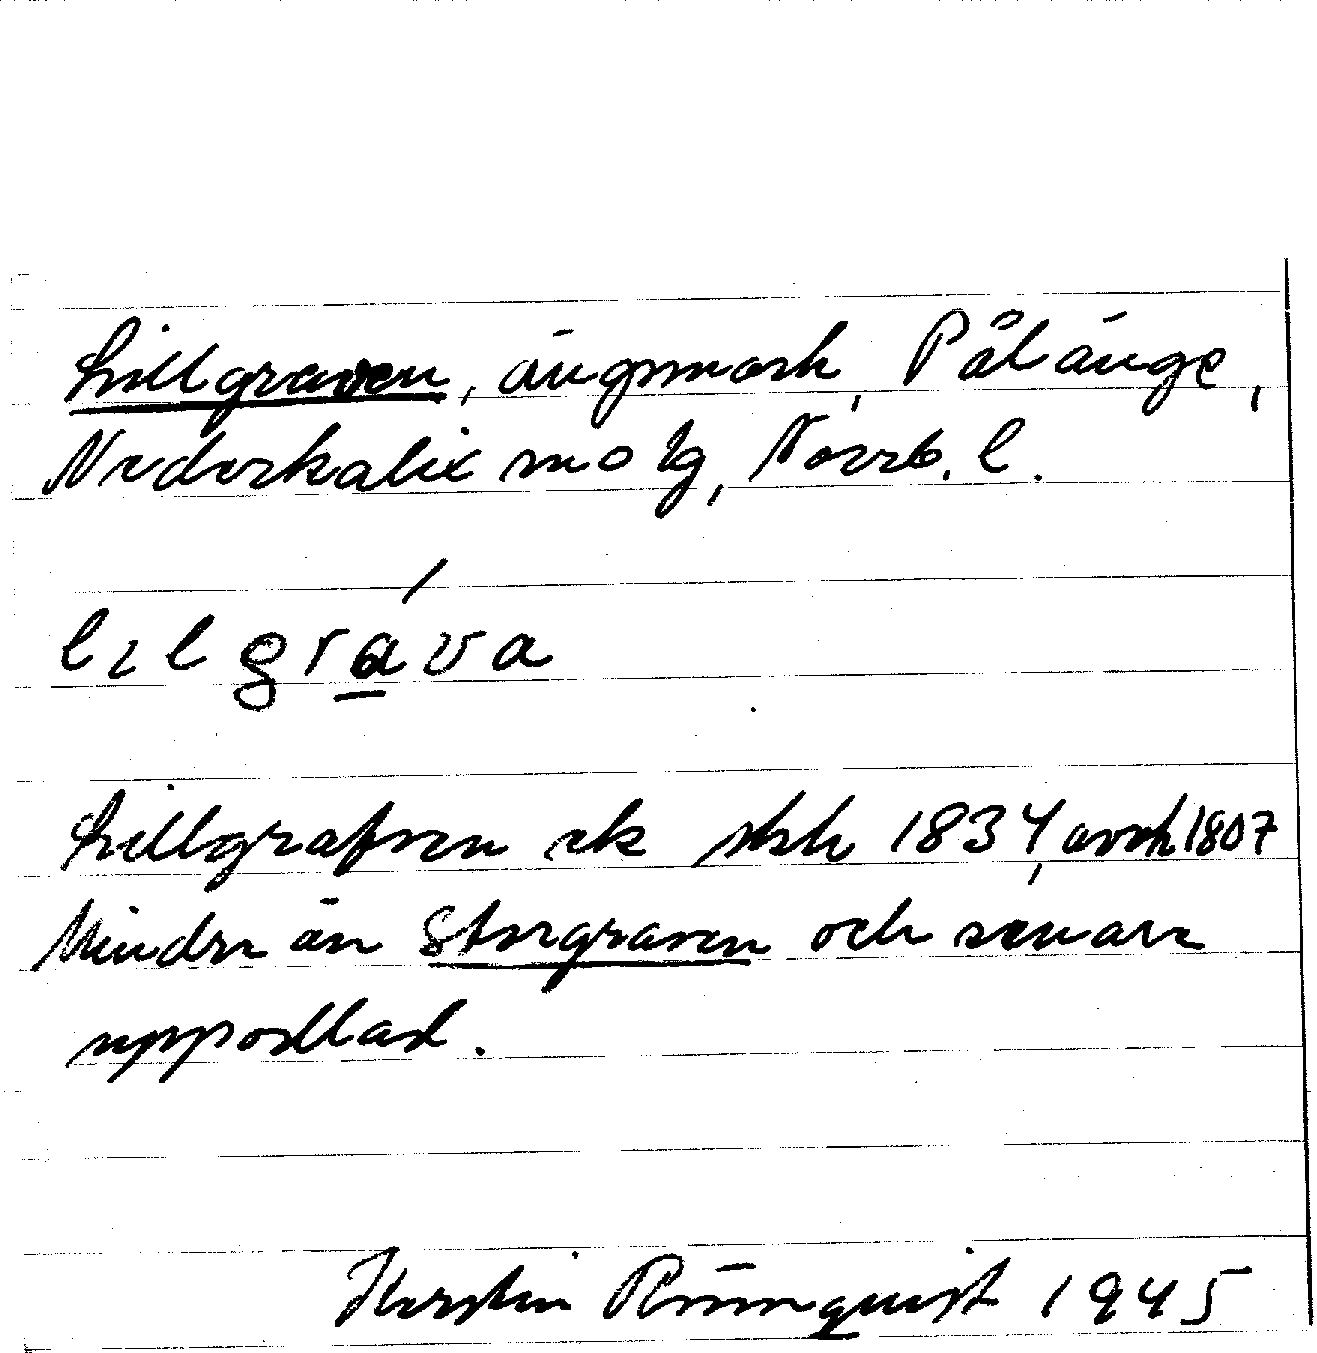 Lillgraven, ängsmark, Pålänge,
Nederkalix sn, Norrb. l.
lilgráva
Lillgrafven ek stsk 1834, avsk 1807
Mindre än Storgraven och senare
uppodlad.
Kerstin Rönnquist 1945